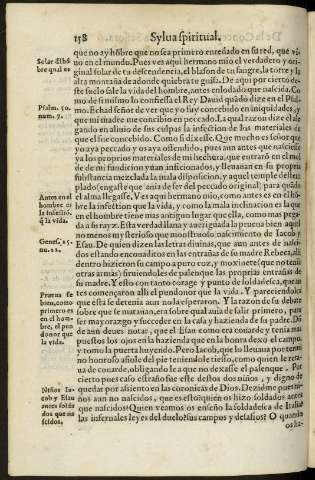 158
Sylua spiritual.
que no ay hõbre que no sea primero enredado en su red, que vi-
uo en el mundo. Pues ves aqui hermano mio el verdadero y ori-
ginal solar de tu descendencia, el blason de tu sangre, la torre y la
alta montaña de adonde quiebra tu gneis. De aqui por cierto des-
te suelo sale la vida del hombre, antes enlodado que nascida. Co
mo de si mismo lo confiessa el Rey Dauid quãdo dize en el Psal-
mo. Echad señor de ver que yo fuy concebido en iniquidades, y
que mi madre me concibio en peccado. La qual razon dize ale-
gando en aliuio de sus culpas la infection de los materiales de
que el fue concebido. Como si dixesse. Que mucho es señor que
yo aya peccado y os aya offendido, pues aun antes que nasciesse
ya los proprios materiales de mi hechura, que entrarõ en el mol
de de mi fundicion yuan inficionados, y lleuauan en su propria
substancia mezclada la mala disposicion, y aquel temple destem
plado (engaste que auia de ser del peccado original) para quãdo
el alma llegasse. Ves aqui hermano mio, como antes es en el hõ-
bre la infection que la vida, y como la mala inclinacion es la que
en el hombre tiene mas antiguo lugar que ella, como mas pega-
da a su rayz. Esta verdad llana y aueriguada la prueua bien aquel
no menos mysterioso que monstruoso nascimiento de Iacob y
Esau. De quien dizen las letras diuinas, que aun antes de nasci-
dos estando encouados en las entrañas de su madre Rebeca, alli
dentro hizieron su campo a puro coz, y moxinete (que no teniã
otras armas) siruiendoles de palenque las proprias entrañas de
su madre. Y esto con tanto corage y punto de soldadesca, que an
tes començaron alli el pundonor que la vida. Y pareciendoles
que esta se detenia aun no la esperaron. Y la razon de su debate
sobre que se matauan, era sobre qual auia de salir primero, para
ser mayorazgo y succeder en la casa y hazienda de su padre. Di
de aun deues notar, que el Esau como era couarde y tenia mas
puestos los ojos en la hazienda que en la honra dexo el campo
y tomo la puerta huyendo. Pero Iacob, que lo lleuaua por termi
no honroso asiole del pie teniendole tiesso, como quien le reta-
ua de couarde, obligandole a que no dexasse el palenque. Por
cierto pues caso estraño fue este destos dos niños, y digno de
quedar por assiento en las coronicas de Dios. Dezidme pues ni-
ños aun no nascidos, que es esto? quien os hizo soldados antes
que nascidos? Quien veamos os enseño la soldadesca de Italia?
las infernales leyes del duelo? sus campos y desafios? O quando
os ha-
Solar d'l hõ-
bre qual es
Psalm. 50.
num. 7.
Antes en el
hombre es
la infectiõ
q̃ la vida.
Genes. 25.
nu. 22.
Prueua se
bien, como
primero es
en el hom-
bre, el pun
donor que
la vida.
Niños Ia-
cob y Esau
antes solda
dos que na
scidos.